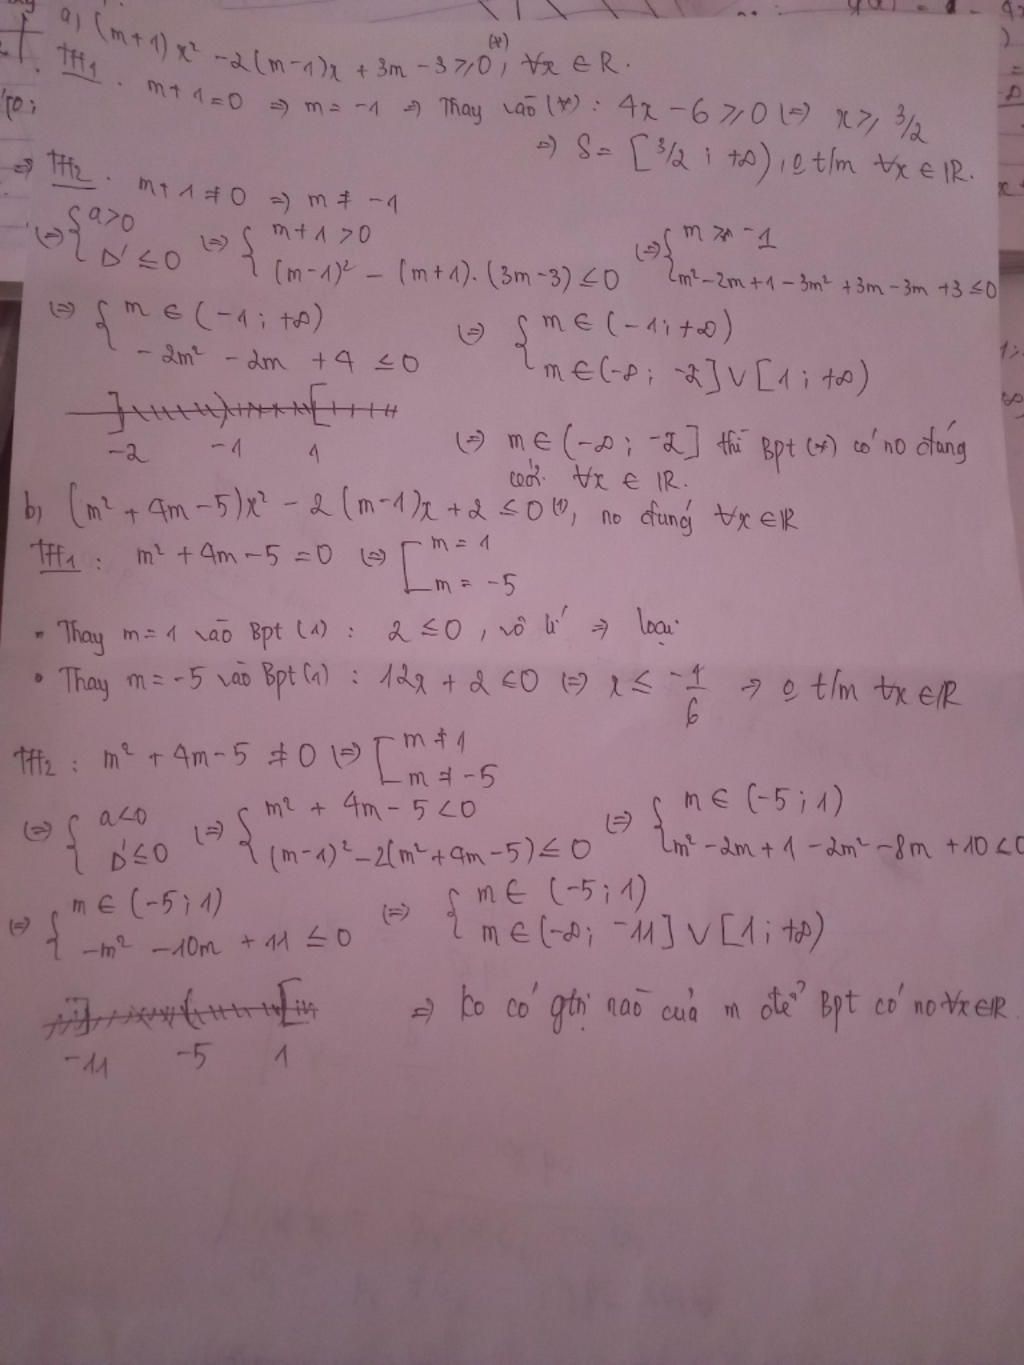 a) (m+1)x² - 2(m-1)x + 3m - 3 ≥ 0 (*), ∀x ∈ R.
TH1. m+1=0 => m = -1 => Thay vào (*): 4x - 6 ≥ 0 <=> x ≥ 3/2
=> S = [3/2; +∞), o t/m ∀x ∈ R.
=> TH2. m+1 ≠ 0 => m ≠ -1
<=> { a>0 <=> { m+1>0 <=> { m > -1
Δ' ≤ 0 (m-1)² - (m+1).(3m-3) ≤ 0 m² - 2m + 1 - 3m² + 3m - 3m + 3 ≤ 0
<=> { m ∈ (-1; +∞) <=> { m ∈ (-1; +∞)
-2m² - 2m + 4 ≤ 0 m ∈ (-∞; -2] ∨ [1; +∞)
-2 -1 1 <=> m ∈ (-∞; -2] thì Bpt (*) có no đúng
∀x ∈ R.
b, (m² + 4m - 5)x² - 2(m-1)x + 2 ≤ 0 (1), no đúng ∀x ∈ R
TH1: m² + 4m - 5 = 0 <=> [ m = 1
m = -5
• Thay m = 1 vào Bpt (1): 2 ≤ 0, vô lí => loại
• Thay m = -5 vào Bpt (1): 12x + 2 ≤ 0 <=> x ≤ -1/6 => o t/m ∀x ∈ R
TH2: m² + 4m - 5 ≠ 0 <=> [ m ≠ 1
m ≠ -5
<=> { a<0 <=> { m² + 4m - 5 < 0 <=> { m ∈ (-5; 1)
Δ' ≤ 0 (m-1)² - 2(m² + 4m - 5) ≤ 0 m² - 2m + 1 - 2m² - 8m + 10 ≤ 0
=> { m ∈ (-5; 1) <=> { m ∈ (-5; 1)
-m² - 10m + 11 ≤ 0 m ∈ (-∞; -11] ∨ [1; +∞)
=> ko có gtrị nào của m để Bpt có no ∀x ∈ R.
-11 -5 1